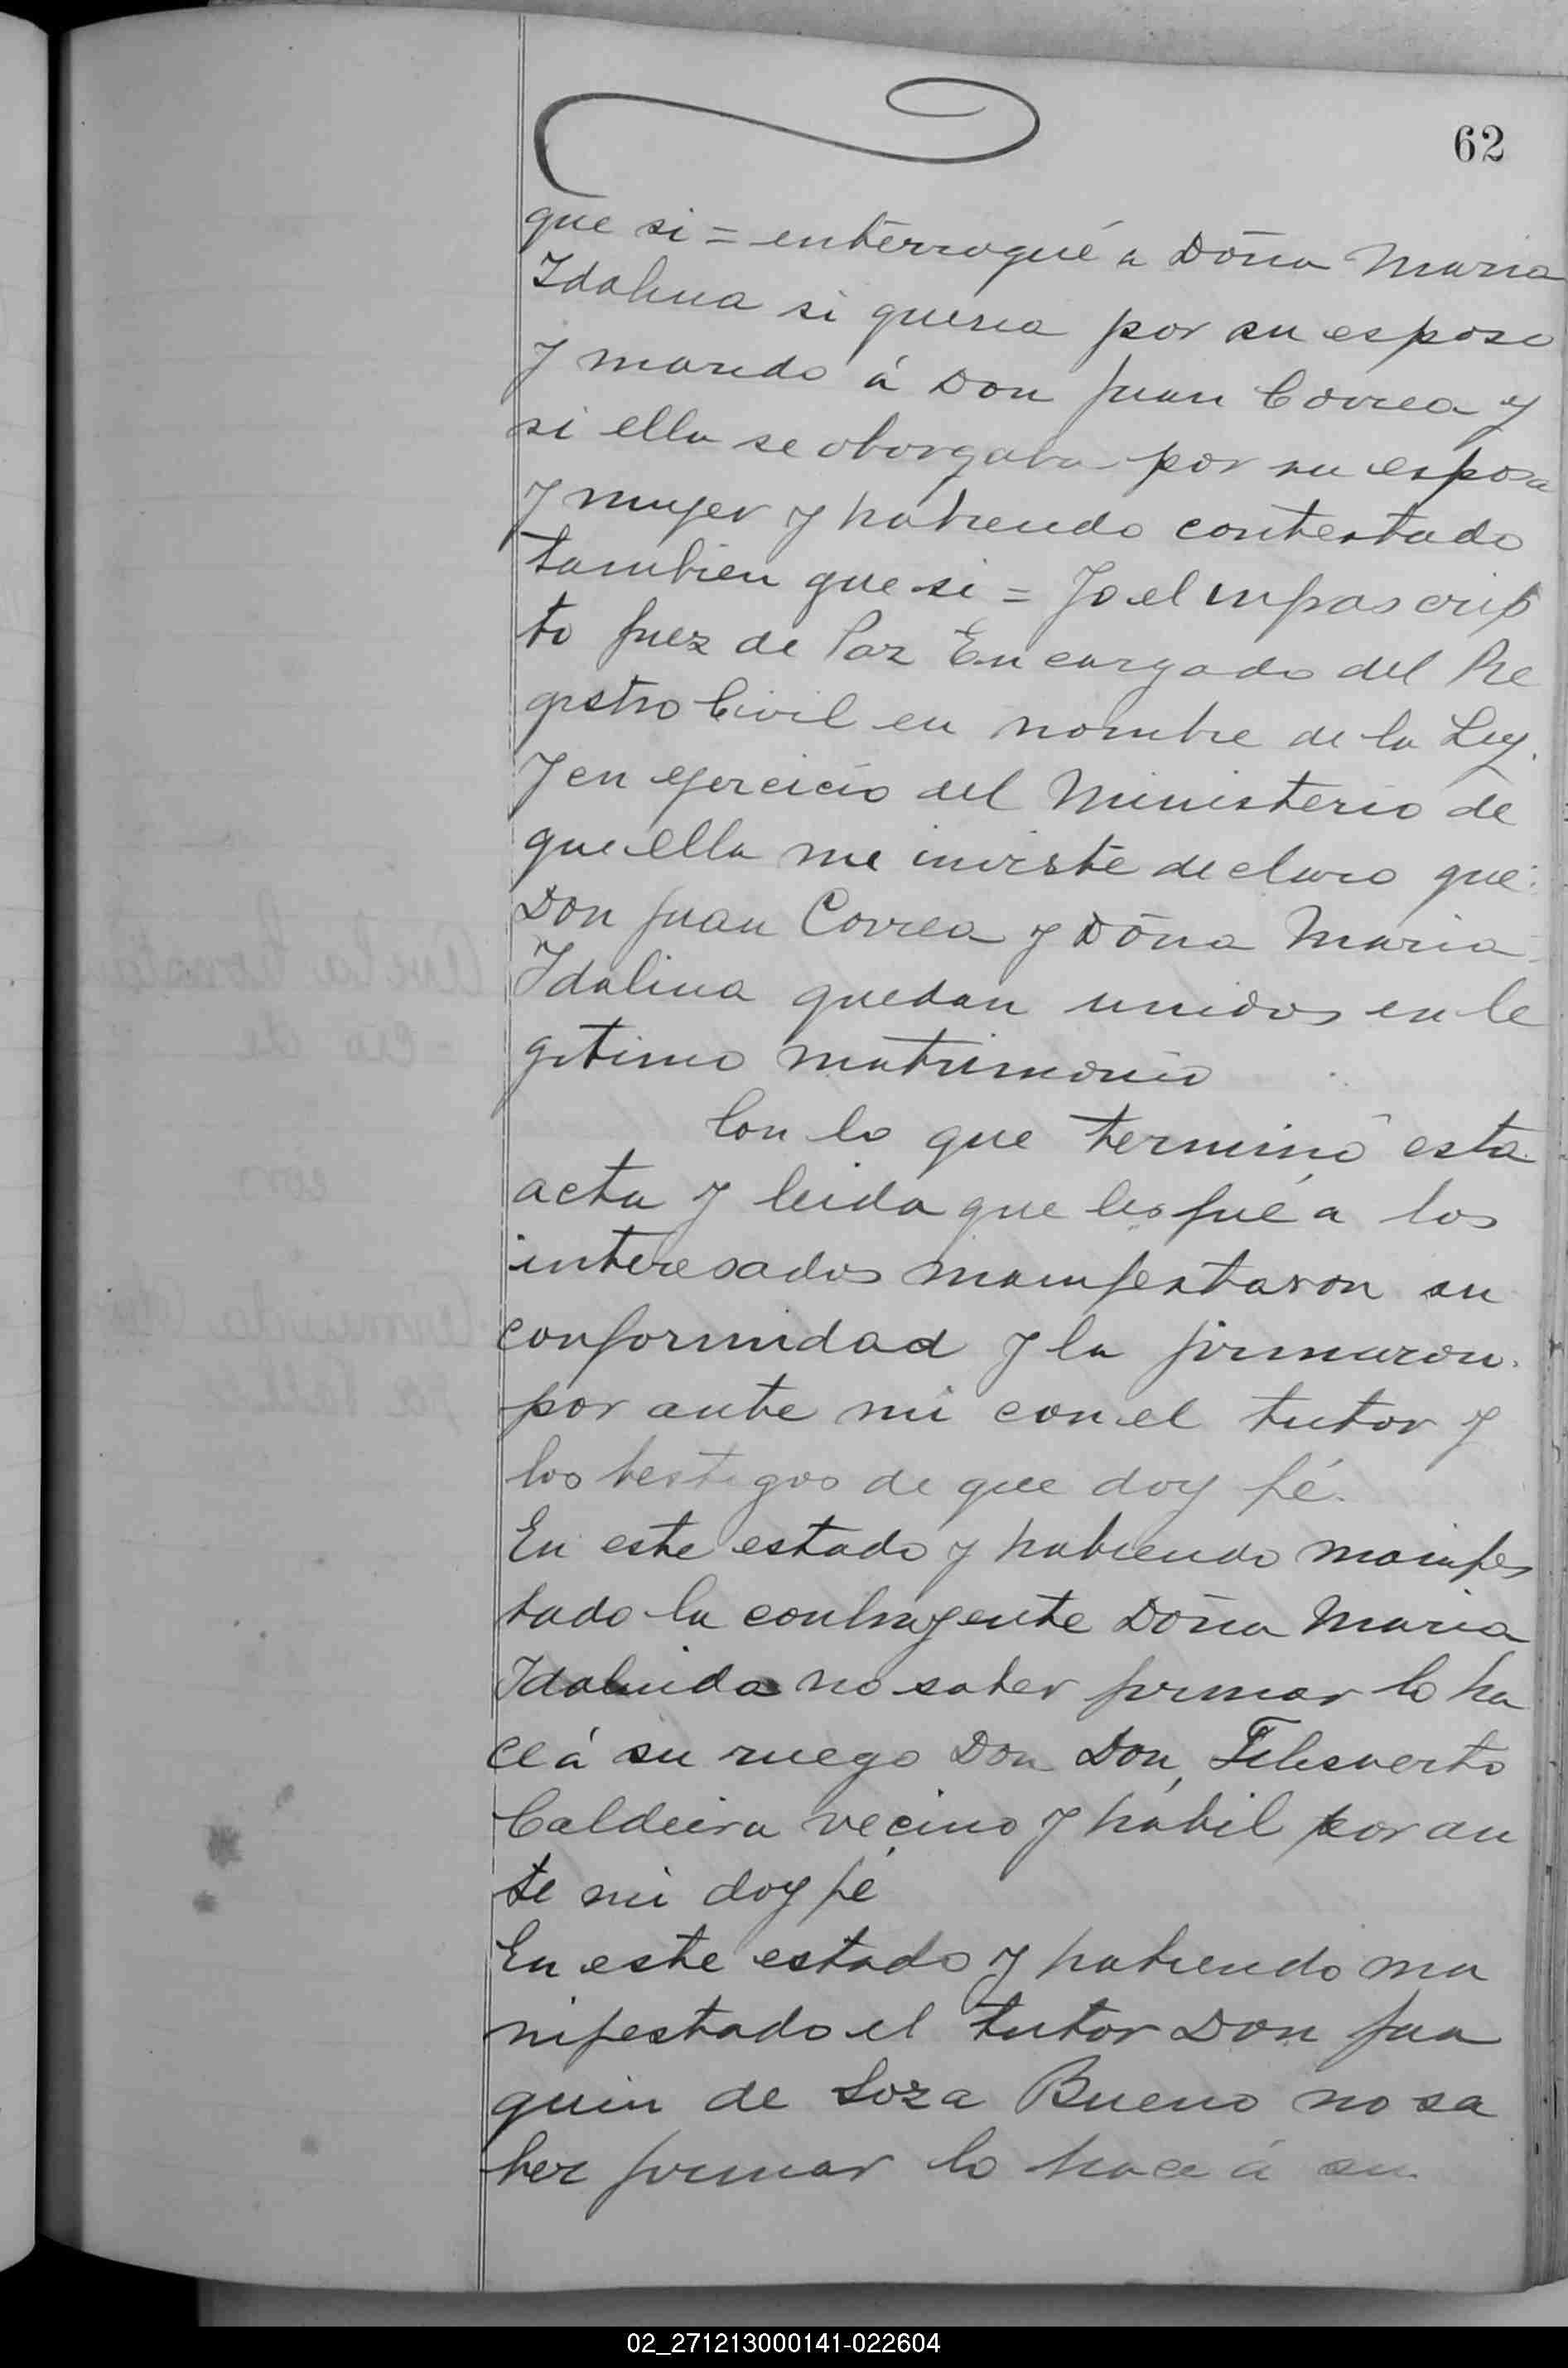 62
que si = enterrogué a Doña Maria
Idalina si queria por su esposo
y marido á Don Juan Correa y
si ella se otorgaba por su esposa
y mujer y habiendo contestado
tambien que si = Yo el infrascrip
to Juez de Paz Encargado del Re
gistro Civil en nombre de la Ley.
y en ejercicio del Ministerio de
que ella me inviste declaro que:
Don Juan Correa y Doña Maria
Idalina quedan unidos en le
gitimo matrimonio
Con lo que terminó esta
acta y leida que les fué a los
interesados manifestaron su
conformidad y la firmaron.
por ante mi con el tutor y
los testigos de que doy fé.
En este estado y habiendo manifes
tado la contrayente Doña Maria
Idalinda no saber firmar lo ha
ce á su ruego Don Don, Filisverto
Caldeira vecino y hábil por an
te mi doy fé
En este estado y habiendo ma
nifestado el tutor Don Jua
quin de Soza Bueno no sa
ber firmar lo hace á su
02_271213000141-022604